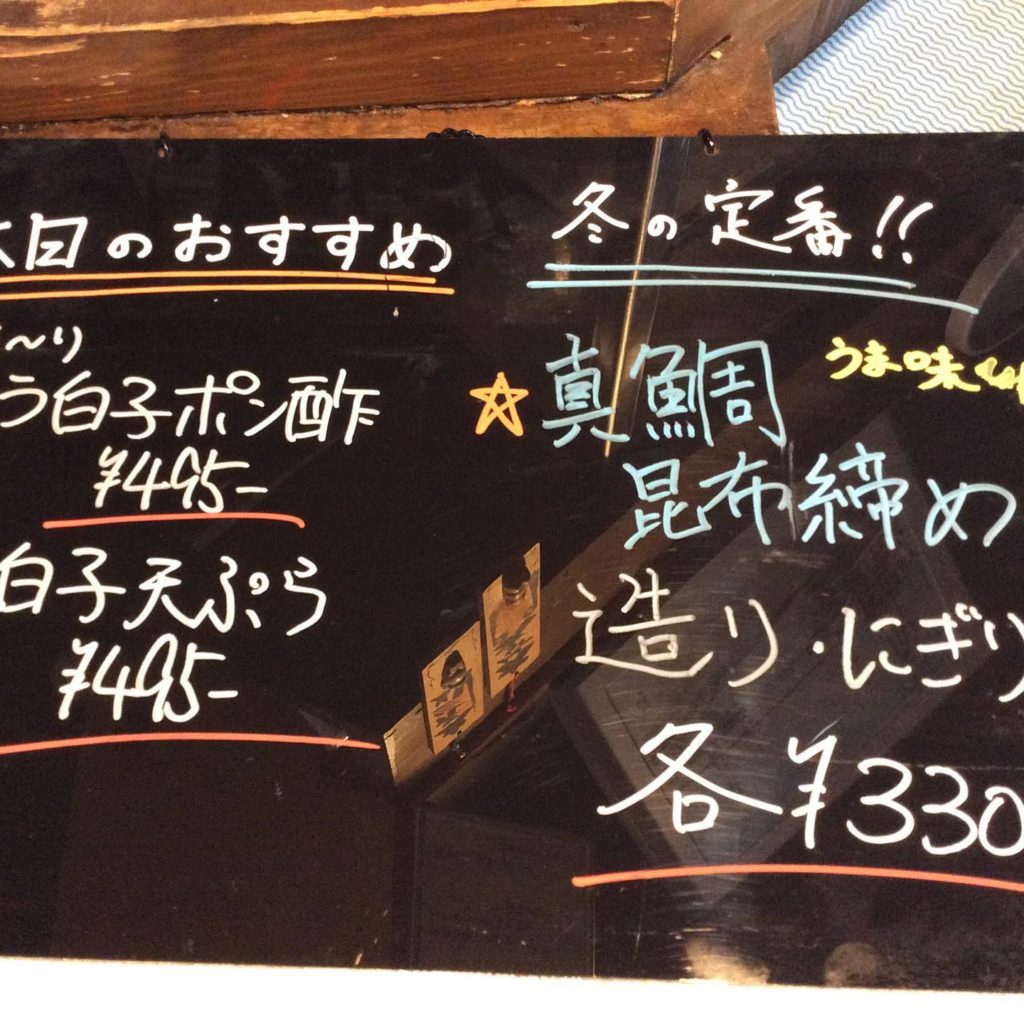 本日のおすすめ
～り
う白子ポン酢
¥495-
白子天ぷら
¥495-
冬の定番!!
うま味
☆真鯛
昆布締め
造り・にぎり
各¥330